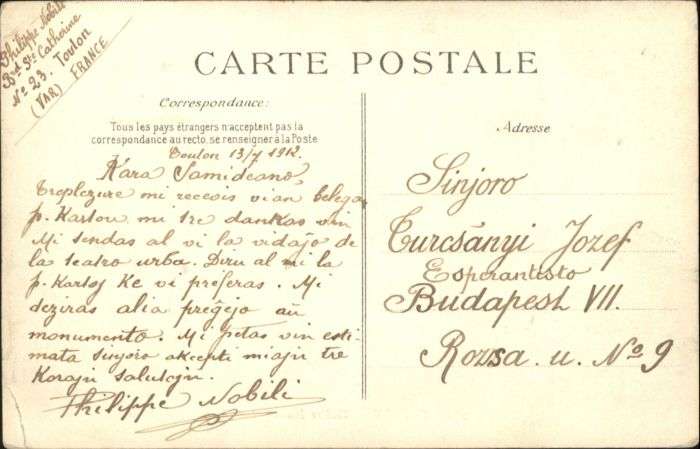 Philippe Nobili
Bd Ste Catherine
No 23. Toulon
(VAR) FRANCE
CARTE POSTALE
Correspondance:
Tous les pays étrangers n'acceptent pas la
correspondance au recto, se renseigner à la Poste
Toulon 13/7 1912.
Kara Samideano,
Treplezure mi recevis vian belega
p. Karton mi tre dankas vin
Mi sendas al vi la vidajo de
la teatro urba. Diru al mi la
p. Kartoj Ke vi preferas. Mi
deziras alia preĝejo aŭ
monumento. Mi petas vin esti-
mata sinjoro akcepti miajn tre
Korajn salutojn.
Philippe Nobili
Adresse
Sinjoro
Turcsányi Jozef
Esperantisto
Budapest VII.
Rozsa. u. No 9